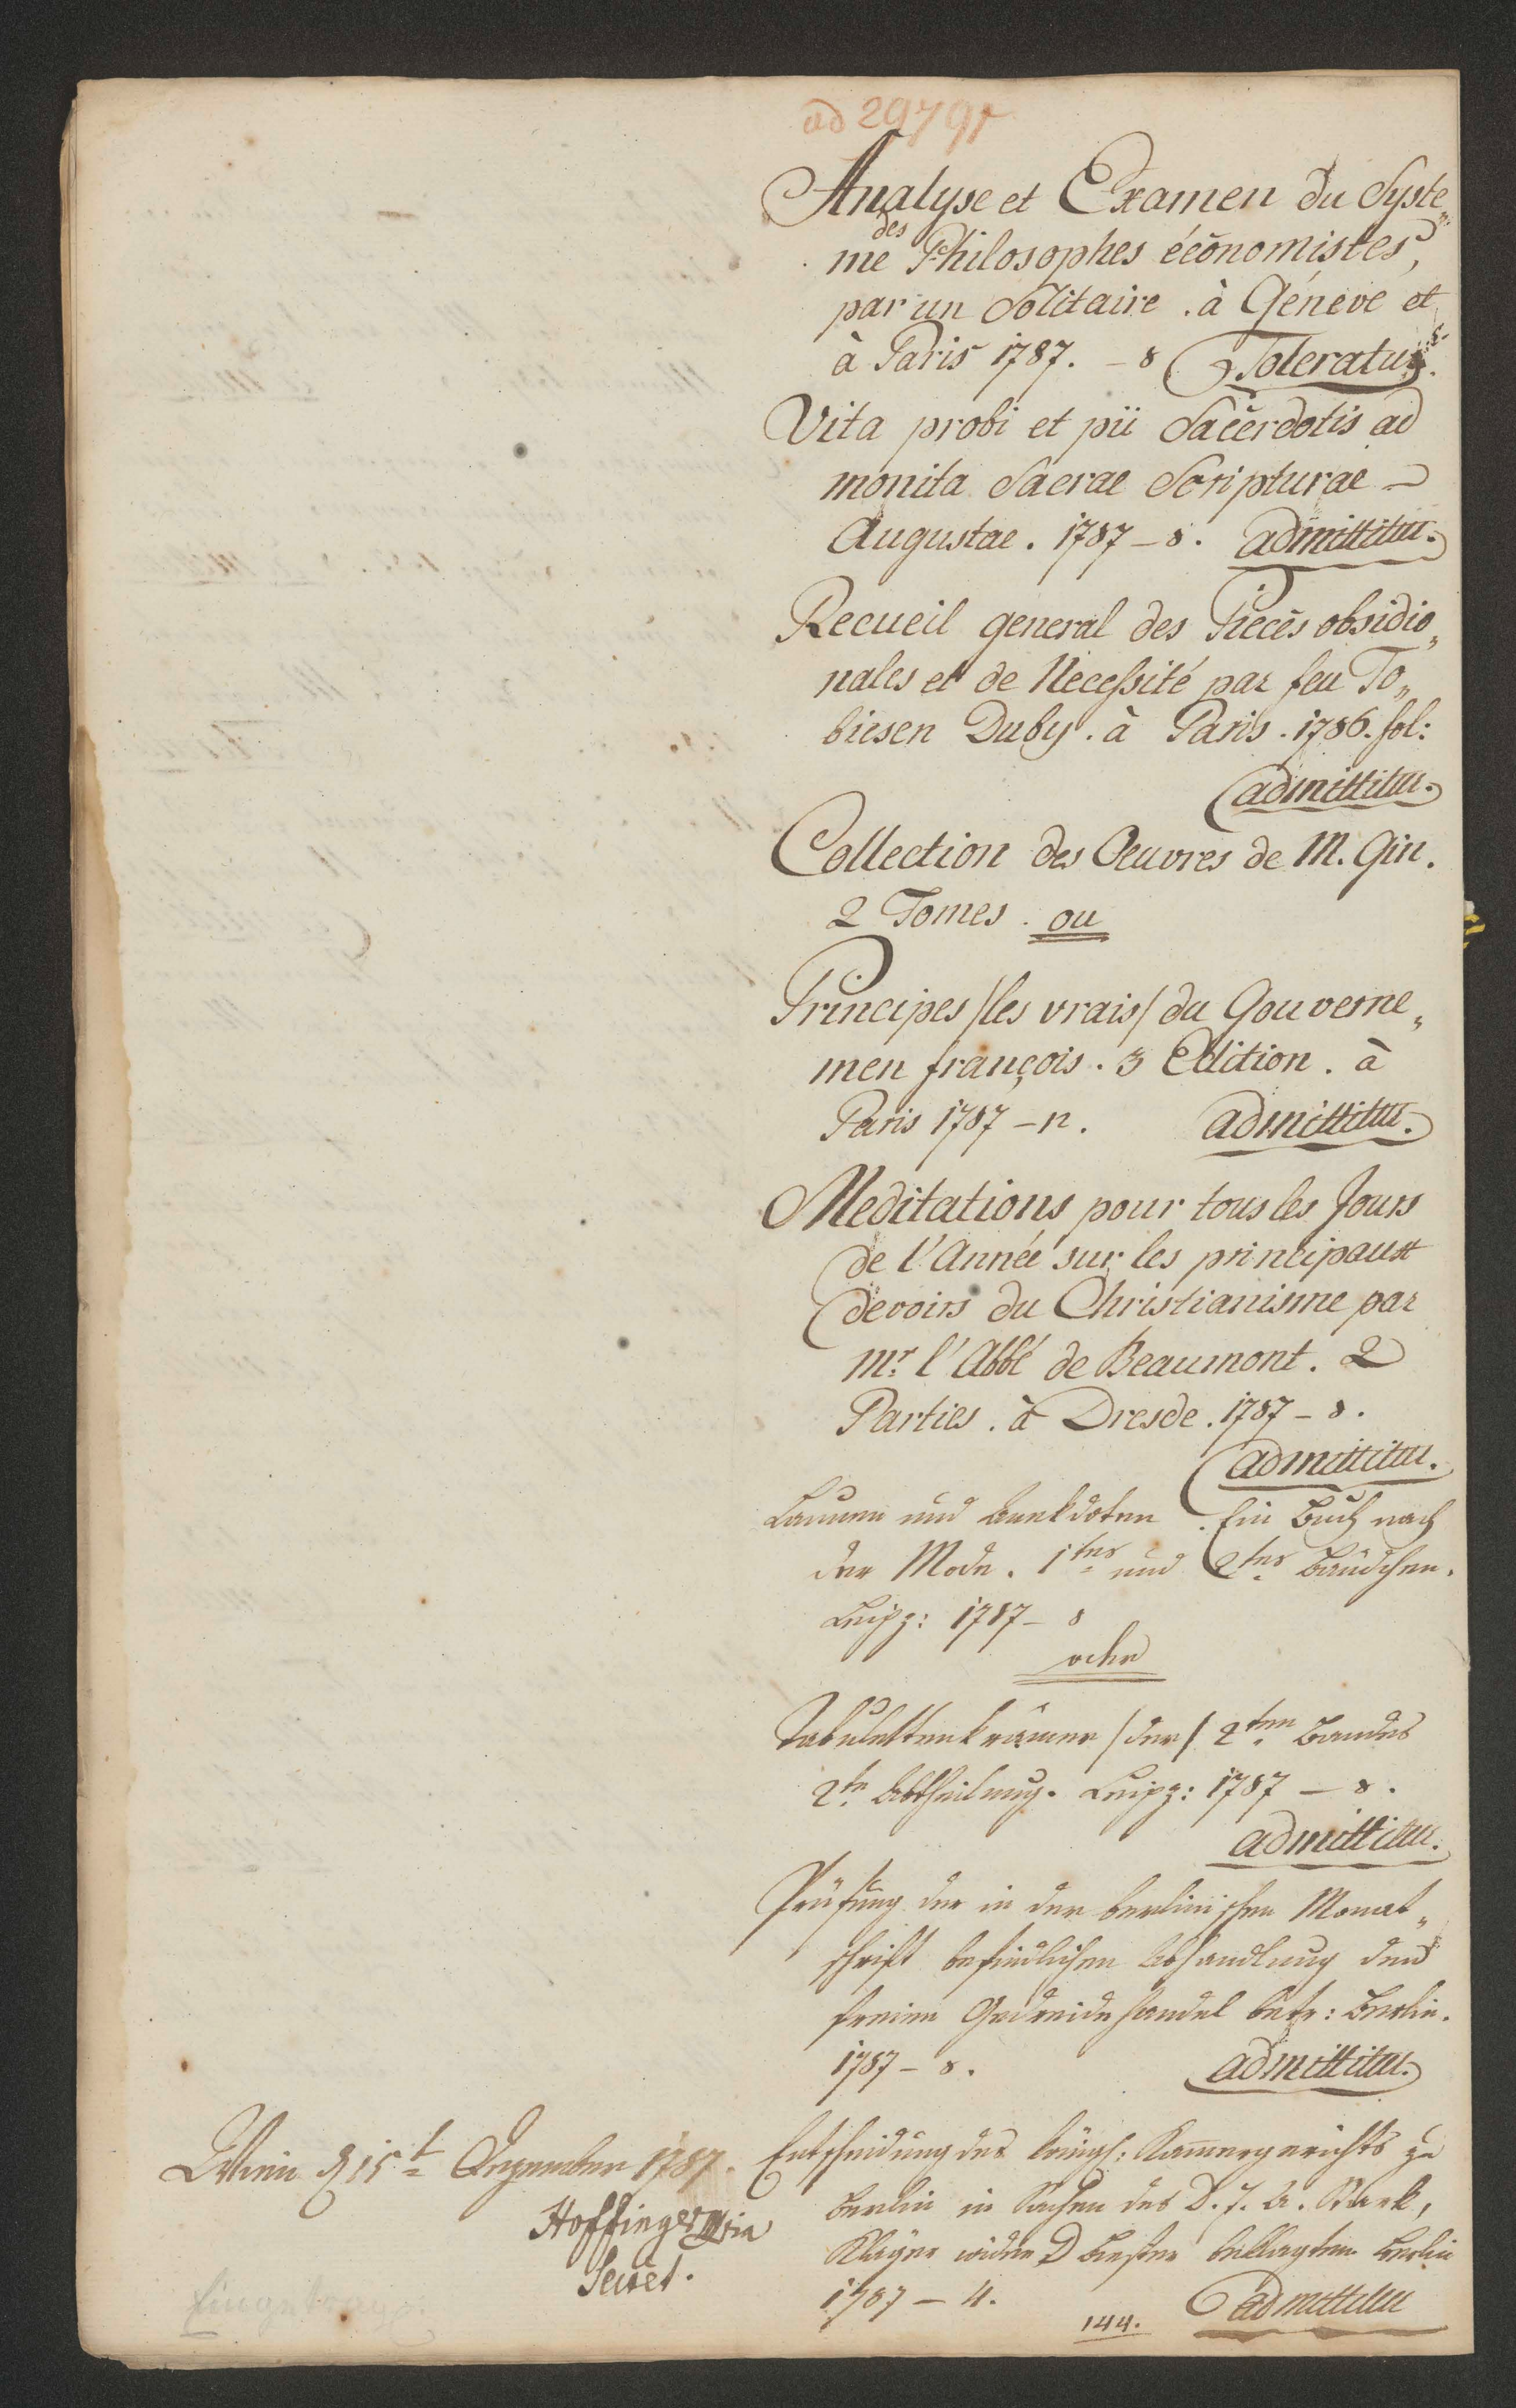 ad 29791
Analyse et Examen du Syste„
me des Philosophes économistes,
par un Solitaire . à Généve et
à Paris 1787. – 8 Toleratur.
Vita probi et pii Sacerdotis ad
monita Sacrae Scripturae –
Augustae . 1787 – 8 . admittitur.
Recueil general des Pieces obsidio„
nales et de Necessité par feu To„
biesen Duby . à Paris . 1786. fol:
admittitur.
Collection des Oeuvres de M. Gin.
2 Tomes . ou
Principes /les vrais/ du Gouverne„
men françois . 3 Edition . à
Paris 1787 – 12. admittitur.
Meditations pour tous les Jours
de l'Année sur les principaux
devoirs du Christianisme par
Mr. l'Abbé de Beaumont . 2
Parties . à Dresde . 1787 – 8 .
admittitur.
Launen und Anekdoten . Ein Buch nach
der Mode . 1tes und 2tes Bändchen .
Leipz: 1787 – 8
oder
Tabulettenkrämer /der/ 2ten Bandes
2te Abtheilung . Leipz: 1787 – 8 .
admittitur.
Prüfung der in der berlinischen Monat„
schrift befindlichen Abhandlung den
freien Getreidehandel betr: Berlin .
1787 – 8 . admittitur.
Entscheidung des königl: Kammergerichts zu
Berlin in Sachen des D. J. A. Stark,
Kläger wider D Biester beklagten Berlin
1787 – 4. admittitur
144.
Wien d 15t Dezember 1787.
Hoffinger
Secret.
Eingetragen.